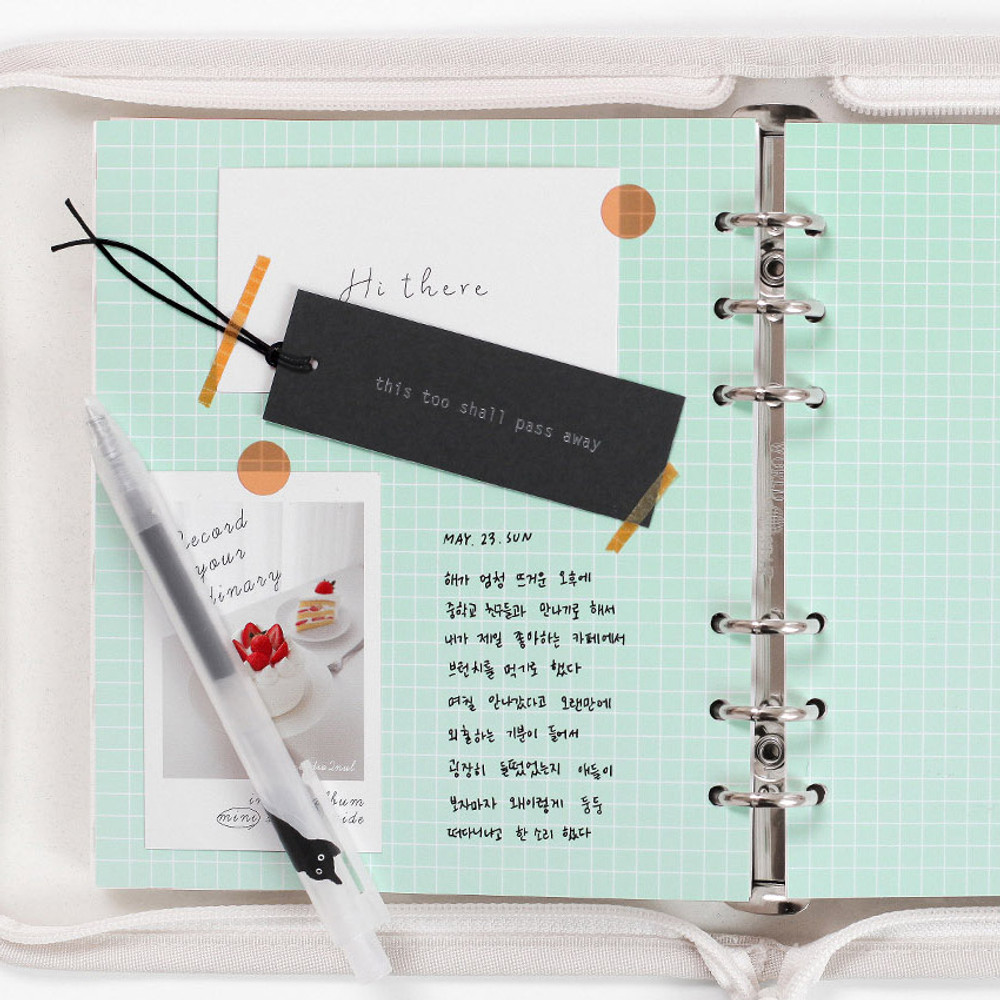 Hi there
this too shall pass away
your
MAY. 23. SUN
해가 엄청 뜨거운 오후에
중학교 친구들과 만나기로 해서
내가 제일 좋아하는 카페에서
브런치를 먹기로 했다
며칠 안나갔다고 오랜만에
외출하는 기분이 들어서
굉장히 들떴었는지 애들이
보자마자 왜이렇게 둥둥
떠다니냐고 한 소리 했다
mini